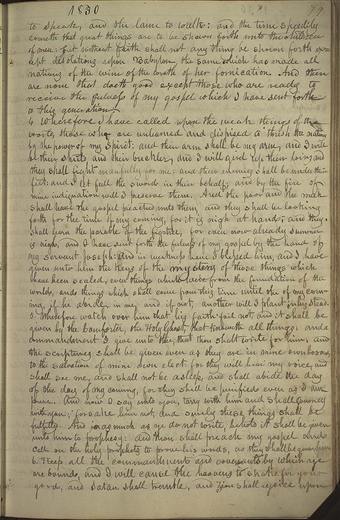 1830
to speak, and the lame to walk: and the time speedily
cometh that great things are to be shown forth unto the children
of men: but without faith shall not any thing be shown forth
cept desolations upon Babylon, the same which has made all
nations of the wine of the wrath of her fornication. And there
are none that doeth good except those who are ready to
receive the fulness of my gospel which I have sent forth
this generation.
4. Wherefore I have called upon the weak things of the
world, those who are unlearned and despised to thrash the nations
by the power of my Spirit: and their arm shall be my arm, and I will
be their shield and their buckler, and I will gird up their loins, and
they shall fight manfully for me: and their enemies shall be under their
feet: and I let fall the sword in their behalf; and by the fire of
mine indignation will I preserve them. And the poor and the meek
shall have the gospel preached unto them, and they shall be looking
forth for the time of my coming, for it is nigh at hand: and they
shall learn the parable of the figtree, for even now already summer
is nigh, and I have sent forth the fulness of my gospel by the hand of
my servant Joseph: and in weakness have I blessed him, and I have
given unto him the keys of the mystery of those things which
have been sealed, even things which were from the foundation of the
world, and things which shall come from this time until the of my com-
ing, if he abide in me, and if not, another will I plant in his stead.
5. Wherefore watch over him that his faith fail not, and it shall be
given by the Comforter, the Holy Ghost, that knoweth all things: and a
commandment I give unto thee, that thou shalt write for him; and
the scriptures shall be given even as they are in mine own bosom,
to the salvation of mine own elect for they will hear my voice, and
shall see me, and shall not be asleep, and shall abide the day
of the day of my coming, for they shall be purified even as I am
pure. And now I say unto you, tarry with him and he shall journey
with you; forsake him not, and surely these things shall be
fulfilled. And inasmuch as ye do not write, behold it shall be given
unto him to prophesy: and thou shalt preach my gospel and
call on the holy prophets to prove his words, as they shall be given him.
6. Keep all the commandments and covenants by which ye
are bounds, and I will cause the heavens to shake for your
good, and Satan shall tremble, and Zion shall rejoice upon